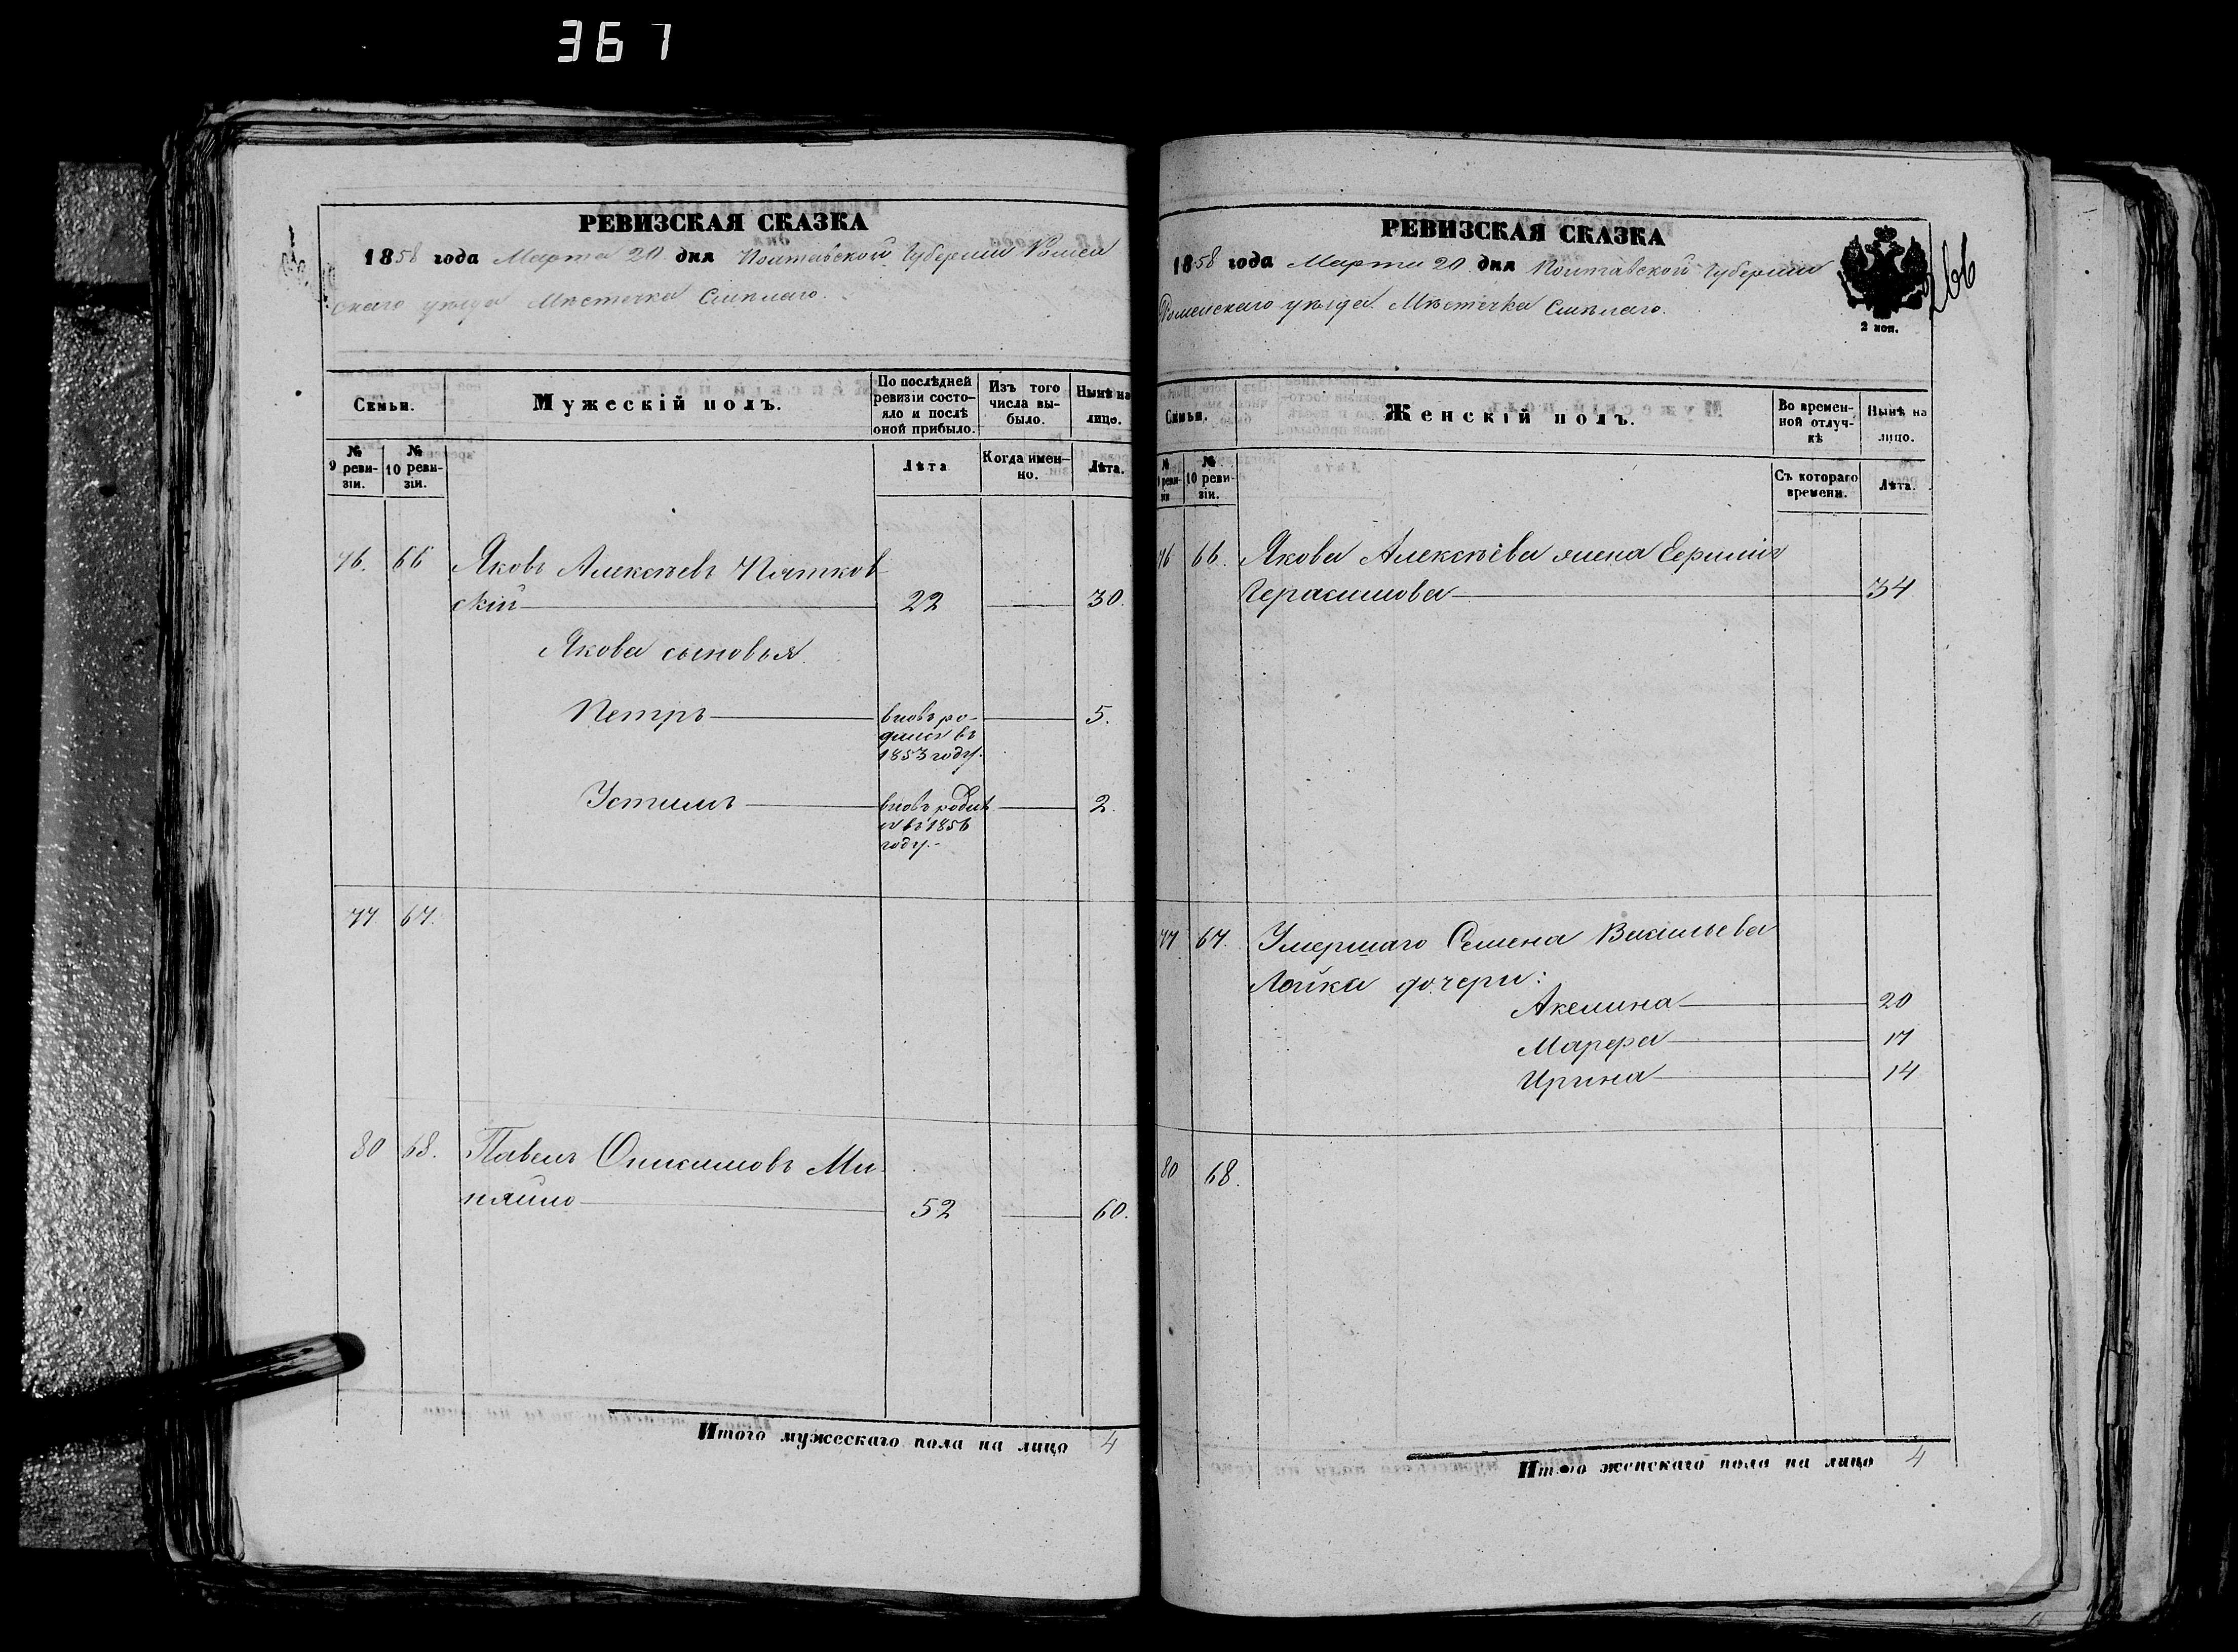 367
РЕВИЗСКАЯ СКАЗКА
1858 года Марта 20 дня Полтавской Губернии Ромен
скаго уѣзда Мѣстечка Смѣлаго.
Семьи.
Мужескій полъ.
По послѣдней ревизіи состояло и послѣ оной прибыло.
Изъ того числа выбыло.
Нынѣ на лицо.
№ 9 ревизіи.
№ 10 ревизіи.
Лѣта
Когда именно.
Лѣта.
76. 66 Яковъ Алексѣевъ Пятков
скій 22 30.
Якова сыновья.
Петръ вновь ро- 5.
дился въ
1853 году.
Устимъ вновь родил 2.
ся въ 1856
году.
77. 67.
80 68. Павелъ Онисимовъ Ми
няйло 52 60.
Итого мужескаго пола на лицо 4
РЕВИЗСКАЯ СКАЗКА
1858 года Марта 20 дня Полтавской Губерніи
Роменскаго уѣзда Мѣстечка Смѣлаго.
2 коп.
266
Семьи.
Женскій полъ.
Во временной отлучкѣ
Нынѣ на лицо.
№ 9 ревизіи
№ 10 ревизіи.
Съ котораго времени.
Лѣта.
76 66. Якова Алексѣева жена
Герасимова 34
77 67. Умершаго Семена Васильева
Лойка дочери:
Акелина 20
Марфа 17
Ирина 14
80 68.
Итого женскаго пола на лицо 4